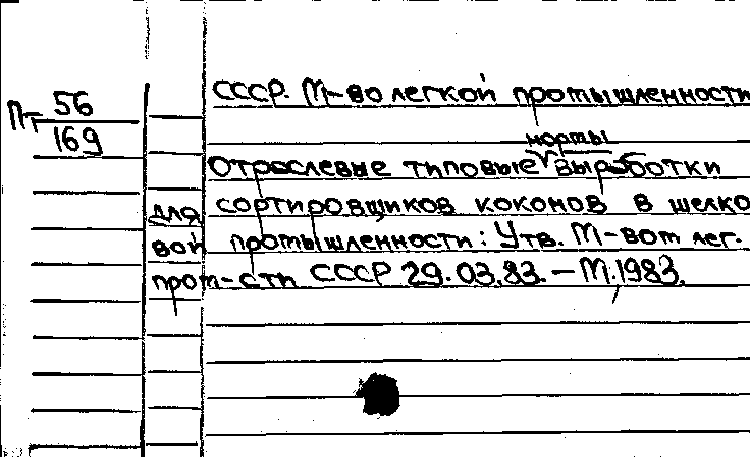 Пт 56
169
СССР. М-во легкой промышленности
нормы
Отраслевые типовые выработки
для сортировщиков коконов в шелко
вой промышленности: Утв. М-вом лег.
пром-сти СССР 29.03.83. – М., 1983.